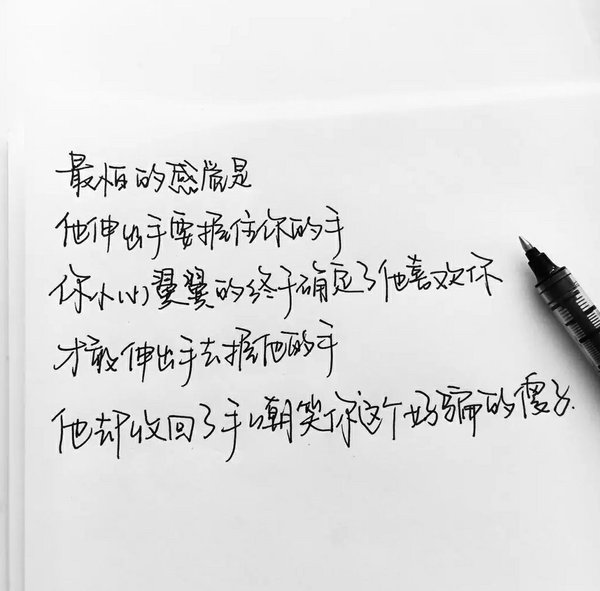 最怕的感觉是
他伸出手要握住你的手
你小心翼翼的终于确定了他喜欢你
才敢伸出手去握他的手
他却收回了手嘲笑你这个好骗的傻子.